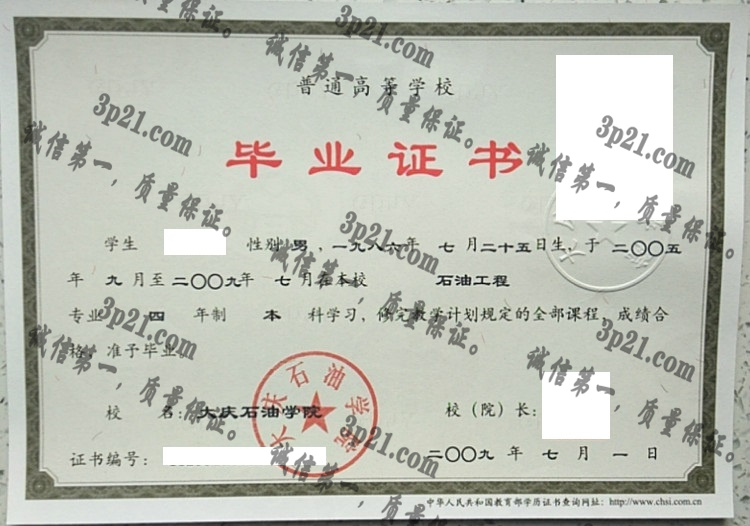 普通高等学校
毕业证书
学生 性别 男 ,一九八六年 七 月二十五日生,于 二〇〇五
年 九 月至二〇〇九年 七 月在本校 石油工程
专业 四 年制 本 科学习,修完教学计划规定的全部课程,成绩合
格,准予毕业。
校 名:大庆石油学院 校(院)长:
证书编号: 二〇〇九 年 七 月 一 日
中华人民共和国教育部学历证书查询网址: http://www.chsi.com.cn
大庆石油学院
3p21.com
诚信第一,质量保证。
3p21.com
诚信第一,质量保证。
3p21.com
诚信第一,质量保证。
3p21.com
诚信第一,质量保证。
3p21.com
诚信第一,质量保证。
3p21.com
诚信第一,质量保证。
3p21.com
诚信第一,质量保证。
3p21.com
诚信第一,质量保证。